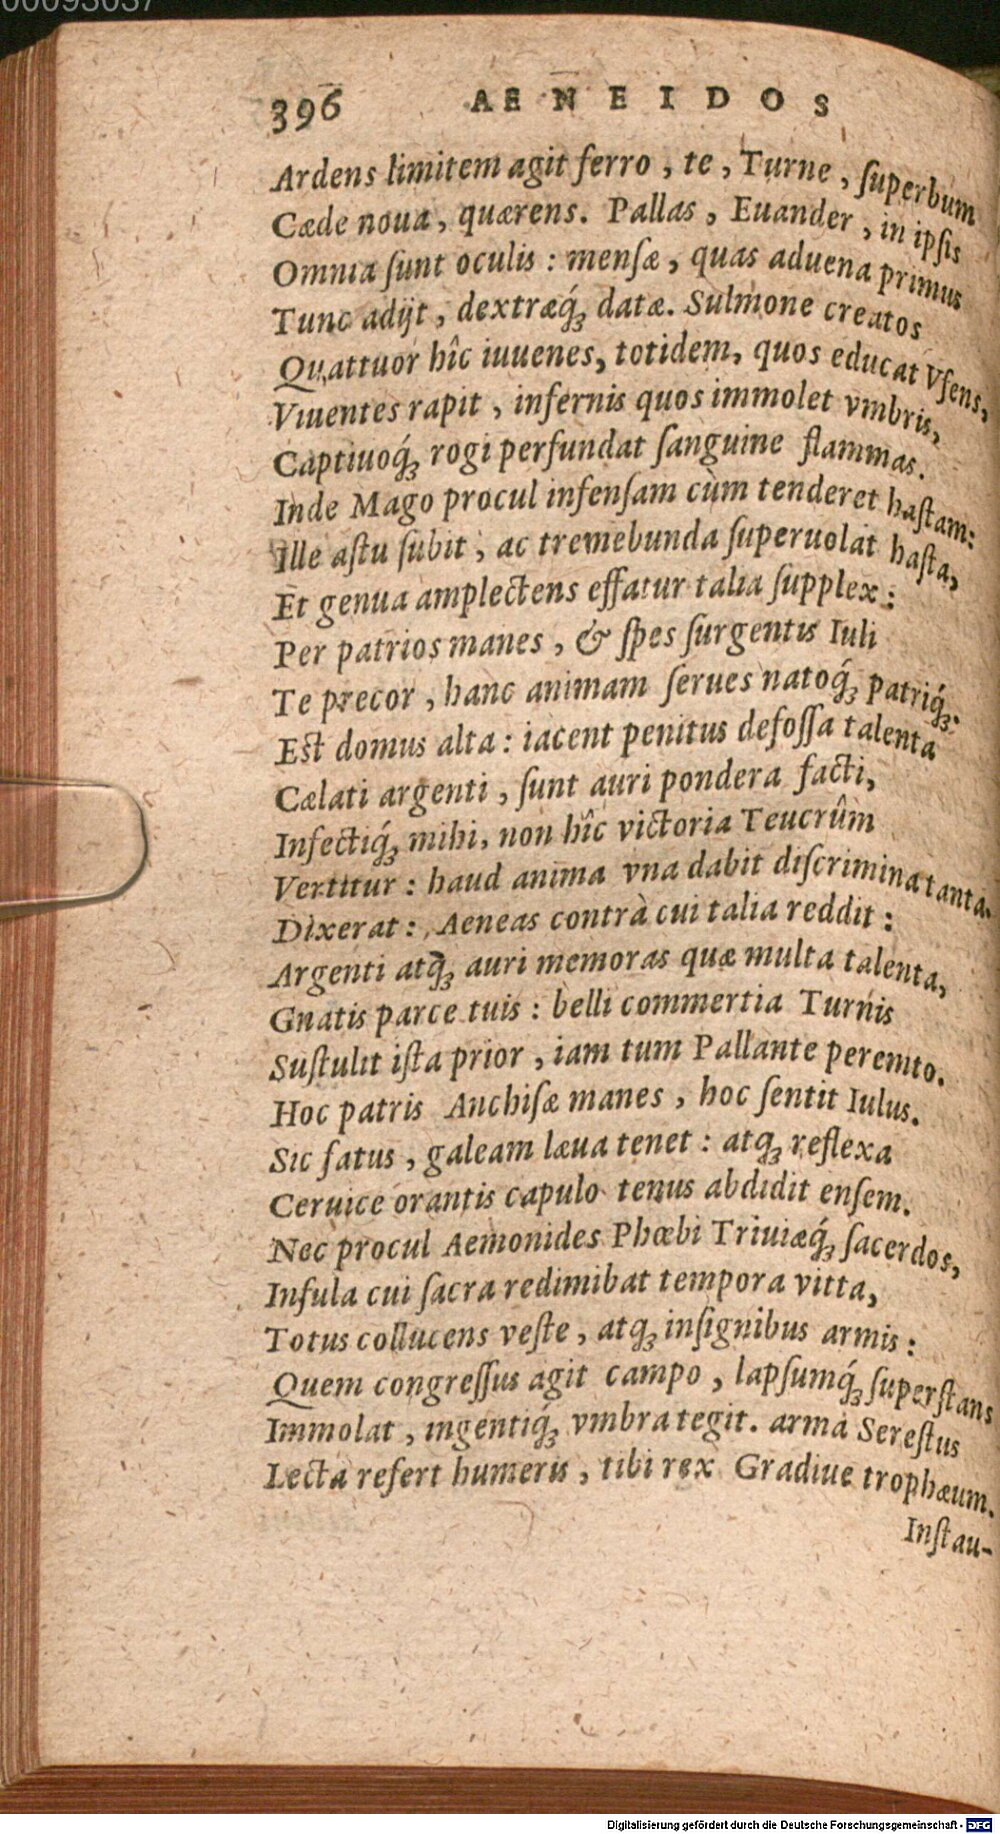 00093037
396 AENEIDOS
Ardens limitem agit ferro, te, Turne, ſuperbum
Cæde noua, quærens. Pallas, Euander, in ipſis
Omnia ſunt oculis: menſæ, quas aduena primus
Tunc adijt, dextræq́ꝫ datæ. Sulmone creatos
Quattuor hîc iuuenes, totidem, quos educat Vſens,
Viuentes rapit, infernis quos immolet vmbris,
Captiuoq́ꝫ rogi perfundat ſanguine flammas.
Inde Mago procul infenſam cùm tenderet haſtam:
Ille aſtu ſubit, ac tremebunda ſuperuolat haſta,
Et genua amplectens effatur talia ſupplex:
Per patrios manes, & ſpes ſurgentis Iuli
Te precor, hanc animam ſerues natoq́ꝫ patriq́ꝫ.
Est domus alta: iacent penitus defoſſa talenta
Cælati argenti, ſunt auri pondera facti,
Infectiq́ꝫ mihi, non hîc victoria Teucrûm
Vertitur: haud anima vna dabit diſcrimina tanta.
Dixerat: Aeneas contrà cui talia reddit:
Argenti atqꝫ auri memoras quæ multa talenta,
Gnatis parce tuis: belli commertia Turnis
Suſtulit iſta prior, iam tum Pallante peremto.
Hoc patris Anchiſæ manes, hoc ſentit Iulus.
Sic fatus, galeam læua tenet: atqꝫ reflexa
Ceruice orantis capulo tenus abdidit enſem.
Nec procul Aemonides Phœbi Triuiæq́ꝫ ſacerdos,
Infula cui ſacra redimibat tempora vitta,
Totus collucens veſte, atqꝫ inſignibus armis:
Quem congreſſus agit campo, lapſumq́ꝫ ſuperſtans
Immolat, ingentiq́ꝫ vmbra tegit. arma Sereſtus
Lecta refert humeris, tibi rex Gradiue trophæum.
Inſtau-
Digitalisierung gefördert durch die Deutsche Forschungsgemeinschaft - DFG